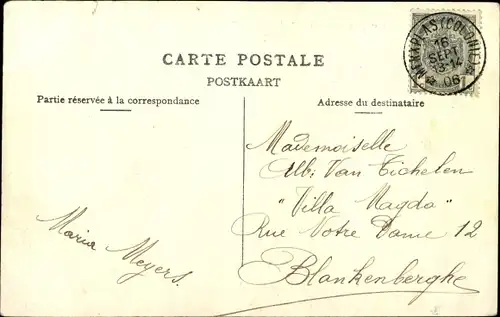 MERXPLAS (COLONIE)
16
SEPT
13-14
06
CARTE POSTALE
POSTKAART
Partie réservée à la correspondance
Adresse du destinataire
Mademoiselle
Alb: Van Tichelen
"Villa Magda"
Rue Notre Dame 12
Blankenberghe
Maria Meyers.